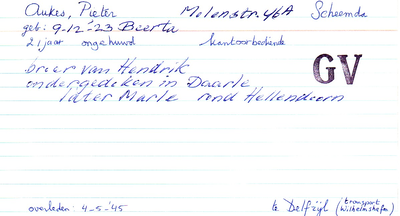 Aukes, Pieter Molenstr. 46A Scheemda
geb: 9-12-'23 Beerta
21 jaar ongehuwd kantoorbediende
GV
broer van Hendrik
ondergedoken in Daarle
later Marle rond Hellendoorn
overleden: 4-5-'45 te Delfzijl (transport Wilhelmshafen)